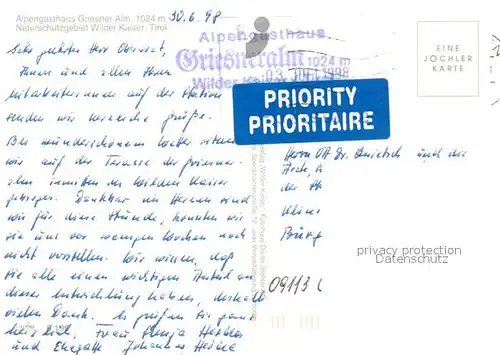 Alpengasthaus Griesner Alm, 1024 m
Naturschutzgebiet Wilder Kaiser, Tirol
30.6.98
Sehr geehrter Herr Oberarzt,
Ihnen und allen Ihren
Mitarbeiterinnen auf der Station
senden wir herzliche Grüße.
Bei wunderschönem Wetter sitzen
wir auf der Terasse der Griesner-
alm inmitten des Wilden Kaiser
gebirges. Dankbar im Herzen sind
wir für diese Stunde, konnten wir
sie uns vor wenigen Wochen noch
nicht vorstellen. Wir wissen, daß
Sie alle einen wichtigen Anteil an
dieser Entwicklung haben, deshalb
vielen Dank. Es grüßen Sie ganz
herzlich, Frau
und Ehegatte Johannes
Alpengasthaus
Griesneralm 1024 m
Wilder Kaiser
03. 1998
PRIORITY
PRIORITAIRE
EINE
JÖCHLER
KARTE
Herrn OA Dr. und die
der
09113
privacy protection
Datenschutz